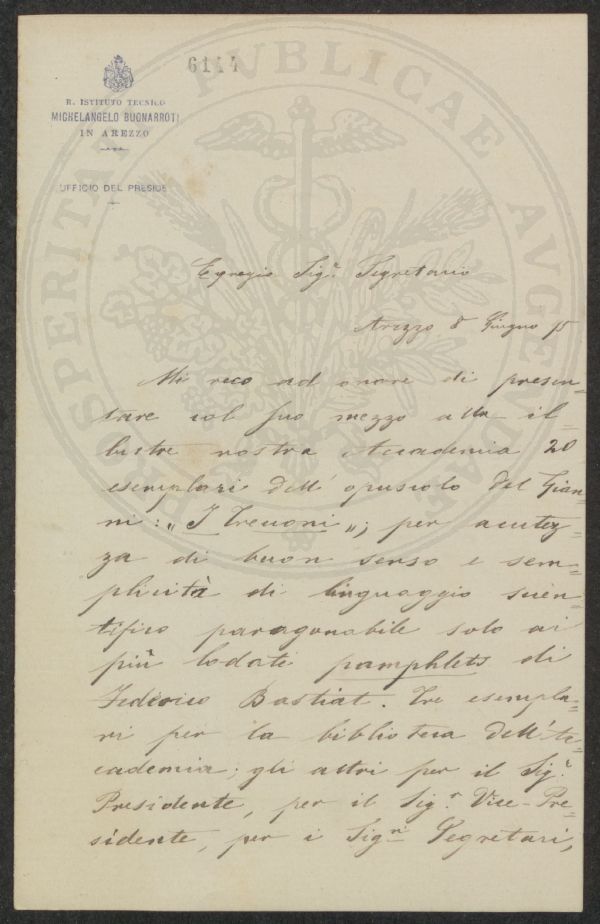 6114
R. ISTITUTO TECNICO
MICHELANGELO BUONARROTI
IN AREZZO
UFFICIO DEL PRESIDE
PROSPERITATI PVBLICAE AVGENDAE
Egregio Sig.r Segretario
Arezzo 8 Giugno 75
Mi reco ad onore di presen-
tare col suo mezzo alla il
lustre nostra Accademia 20
esemplari dell' opuscolo del Gian-
ni: „I Trecconi„; per acutez-
za di buon senso e sem-
plicità di linguaggio scien-
tifico paragonabile solo ai
più lodati pamphlets di
Federico Bastiat. Tre esempla-
ri per la biblioteca dell'Ac-
cademia; gli altri per il Sig.r
Presidente, per il Sig.r Vice-Pre-
sidente, per i Sig.ri Segretari,